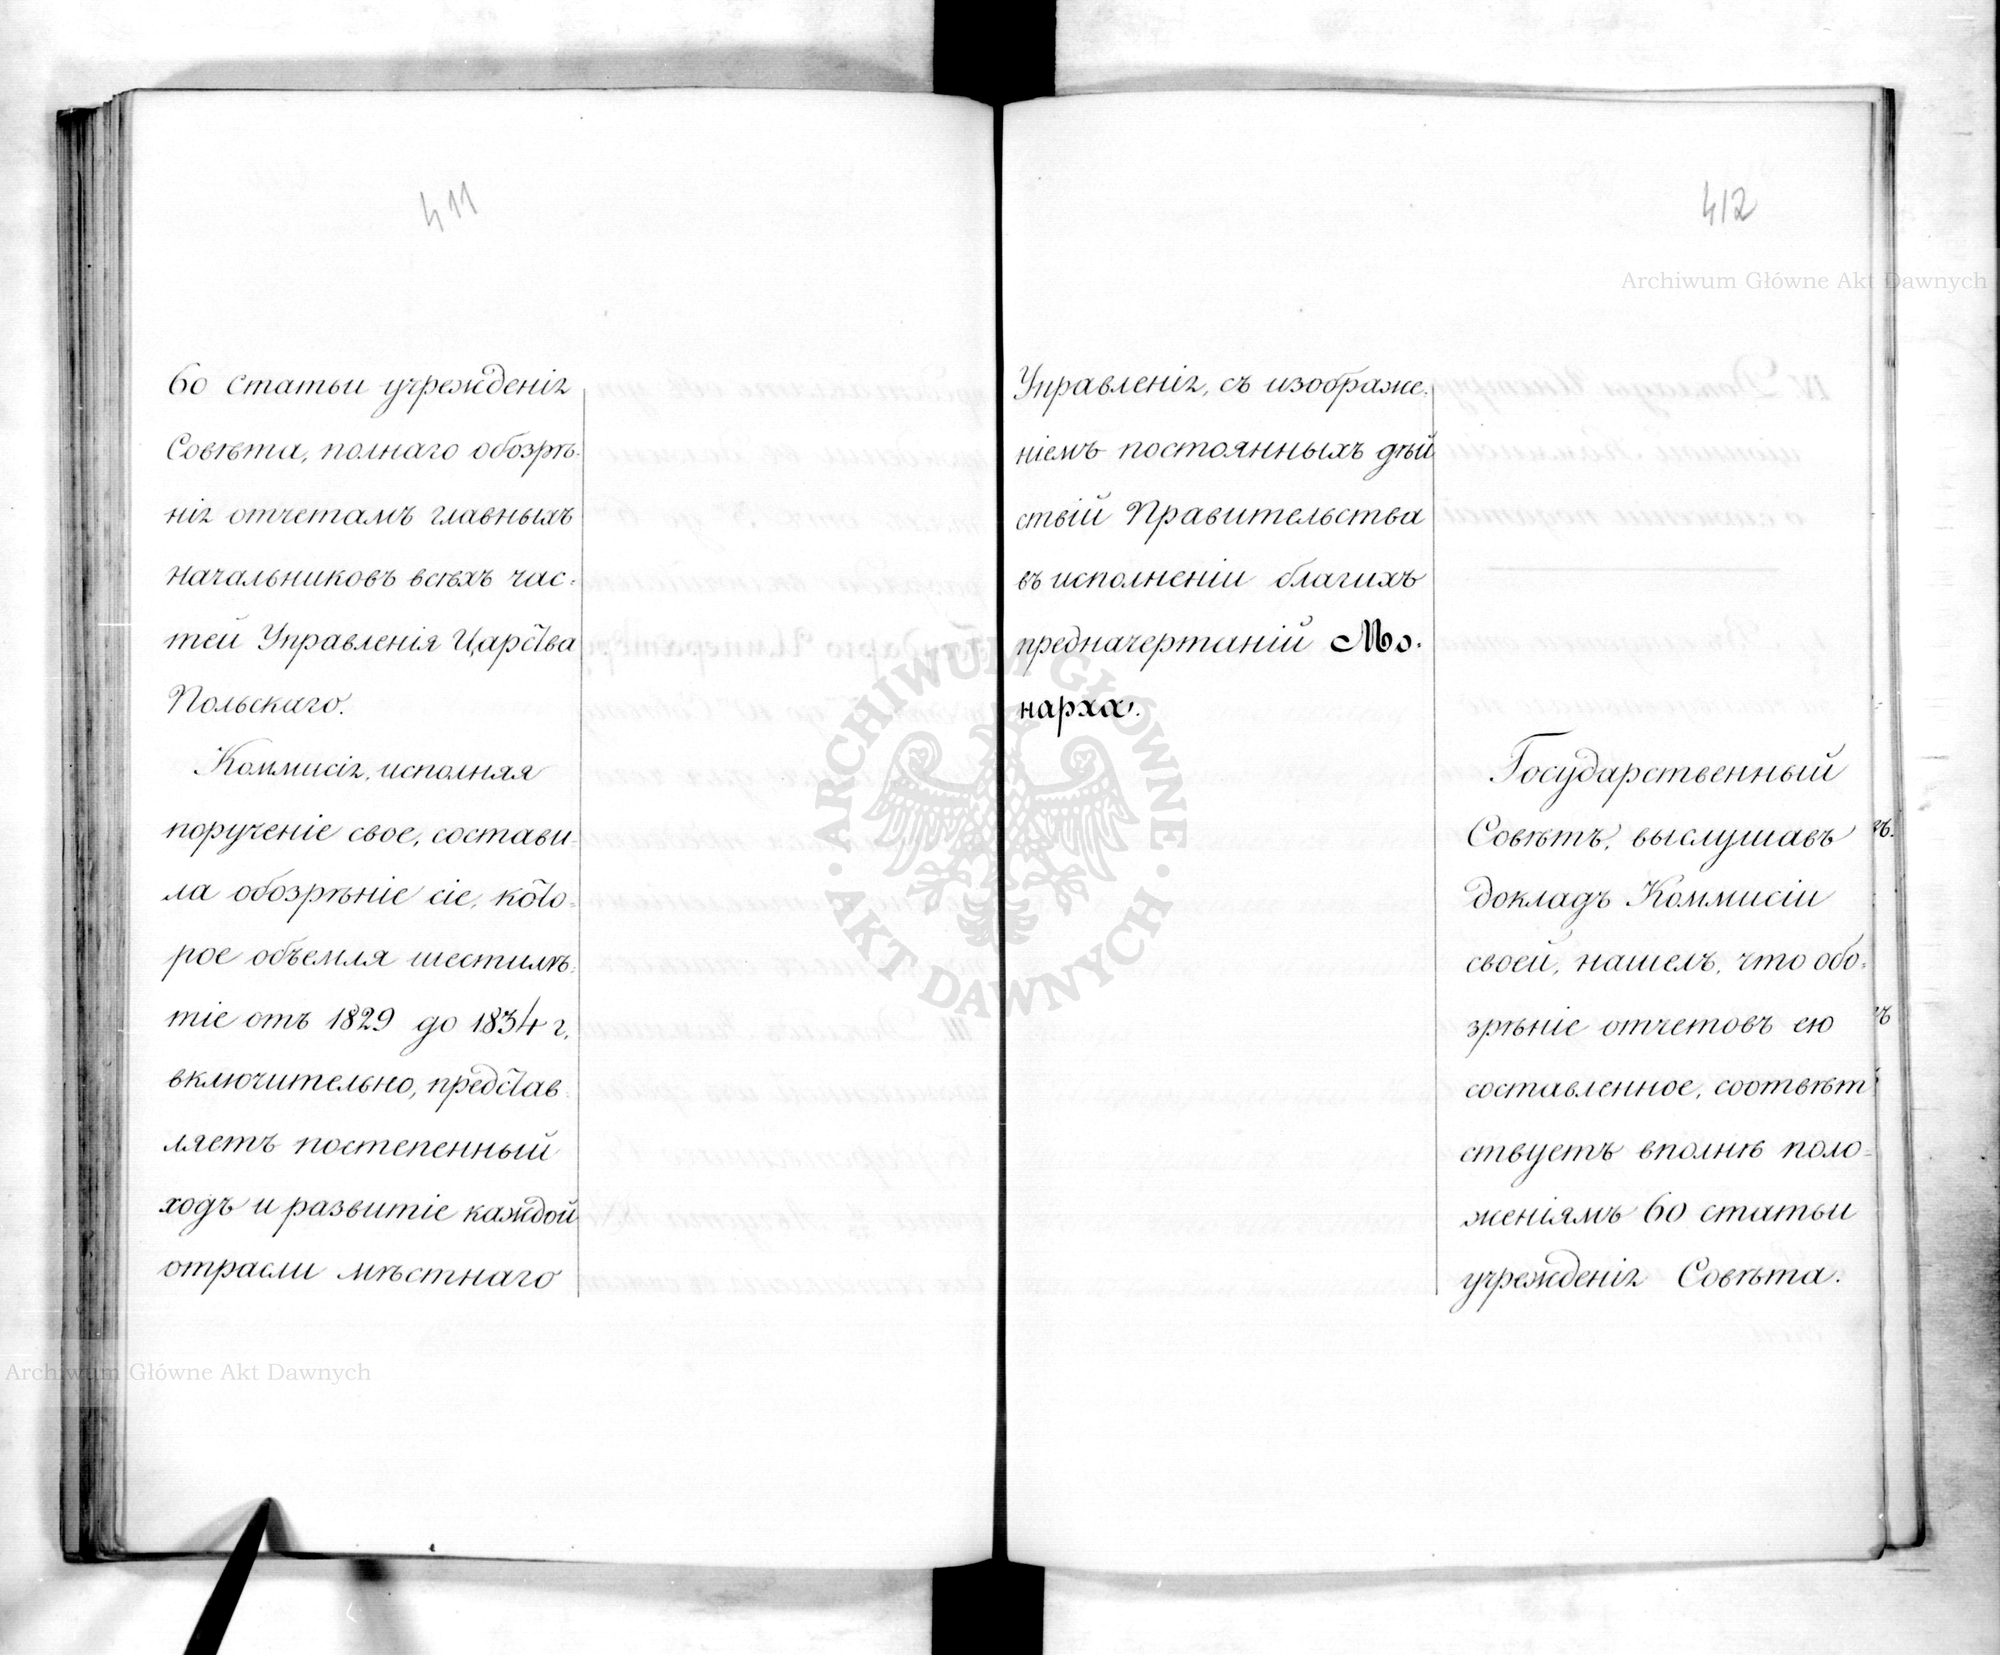 411
60 статьи учрежденія
Совѣта, полнаго обозрѣ-
нія отчетамъ главныхъ
начальниковъ всѣхъ час-
тей Управленія Царства
Польскаго.
Коммисія, исполняя
порученіе свое, состави-
ла обозрѣніе сіе, кото-
рое объемля шестилѣ-
тіе отъ 1829 до 1834 г.
включительно, представ-
ляетъ постепенный
ходъ и развитіе каждой
отрасли мѣстнаго
412
Управленія, съ изображе-
ніемъ постоянныхъ дѣй
ствій Правительства
въ исполненіи благихъ
предначертаній Мо-
нарха.
Государственный
Совѣтъ, выслушавъ
докладъ Коммисіи
своей, нашелъ, что обо-
зрѣніе отчетовъ ею
составленное, соотвѣт
ствуетъ вполнѣ поло-
женіямъ 60 статьи
учрежденія Совѣта.
Archiwum Główne Akt Dawnych
ARCHIWUM GŁÓWNE · AKT DAWNYCH ·
Archiwum Główne Akt Dawnych